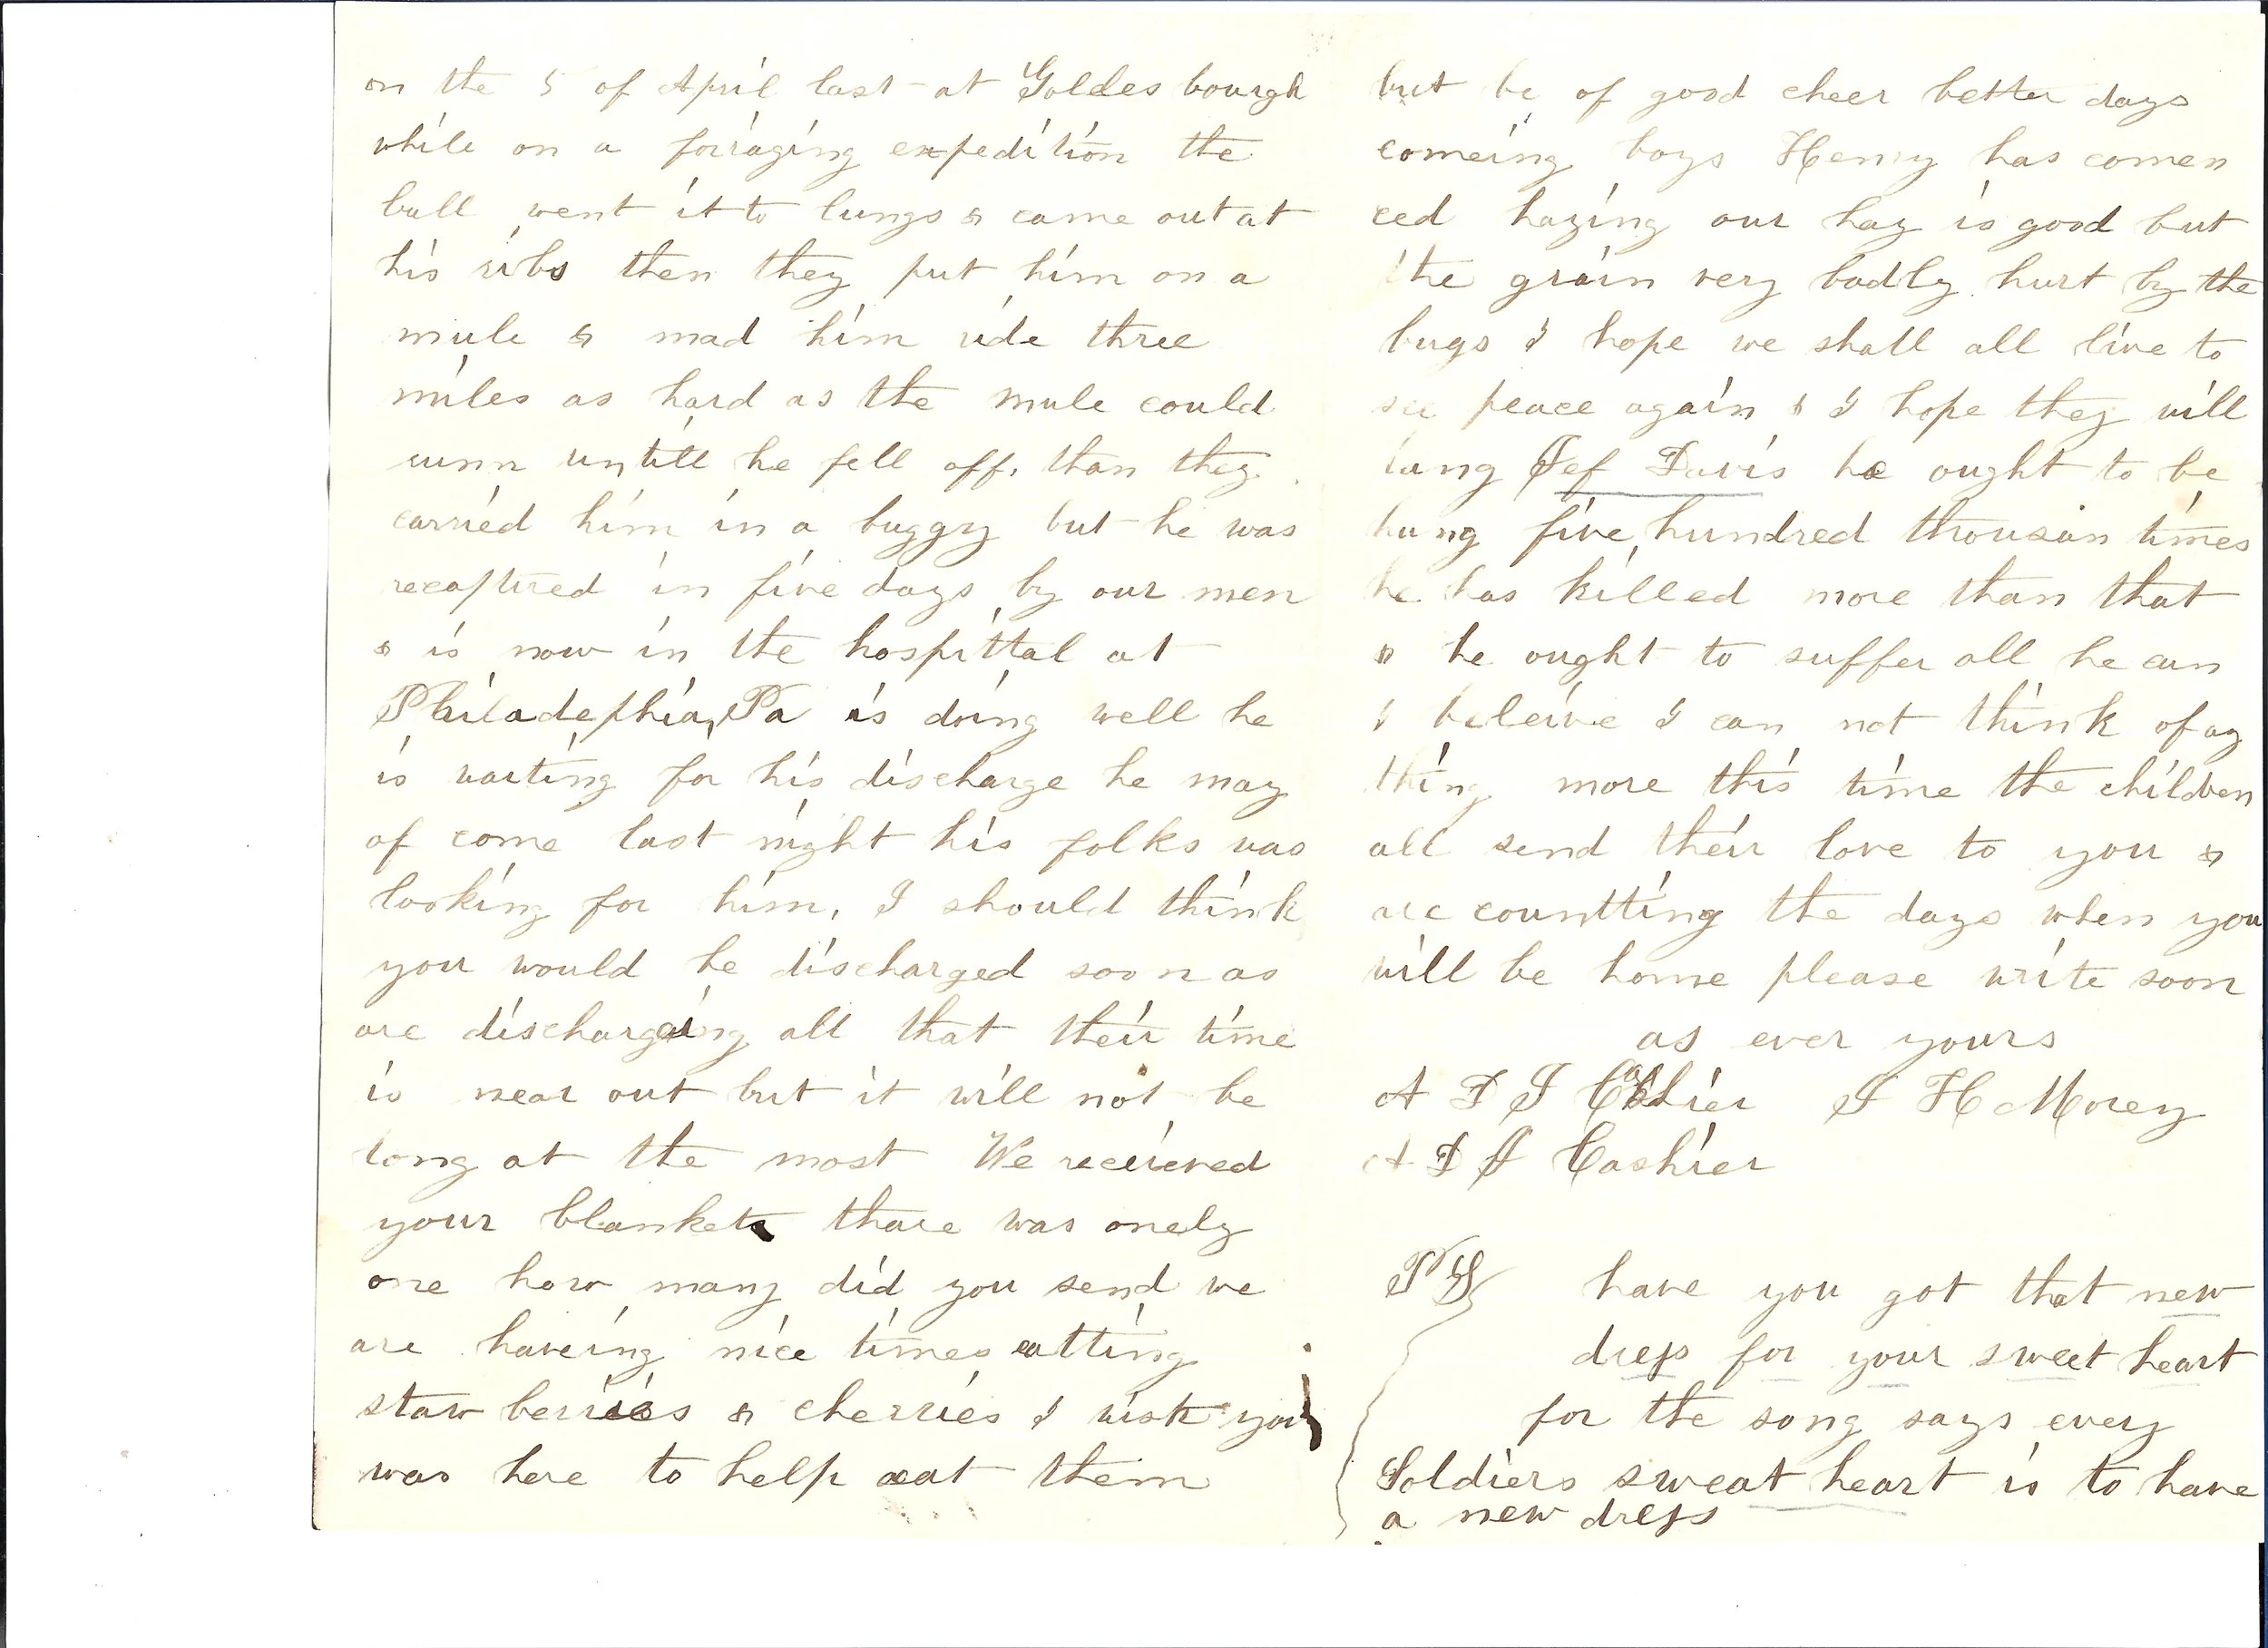 on the 5 of April last at Goldes bourgh
while on a forraging expedition the
ball went it to lungs & came out at
his ribs then they put him on a
mule & mad him ride three
miles as hard as the mule could
runn untill he fell off. than they
carried him in a buggy but he was
recaptured in five days by our men
& is now in the hospittal at
Philadephia, Pa is doing well he
is waiting for his discharge he may
of come last night his folks was
looking for him, I should think
you would be discharged soon as
are discharging all that their time
is near out but it will not be
long at the most We receieved
your blanket thare was onely
one how many did you send we
are haveing nice times eatting
straw berries & cherries I wish you
was here to help eat them
but be of good cheer better days
comeing boys Henry has comen
ced haying our hay is good but
the grain very badly hurt by the
bugs I hope we shall all live to
see peace again & I hope they will
hung Jef Davis he ought to be
hung five hundred thousan times
he has killed more than that
& he ought to suffer all he can
I beleive I can not think of ay
thing more this time the children
all send their love to you &
are countting the days when you
will be home please write soon
as ever yours
A D J Cashier J H Morey
A D J Cashier
PS have you got that new
dress for your sweet heart
for the song says every
Soldiers sweat heart is to have
a new dress